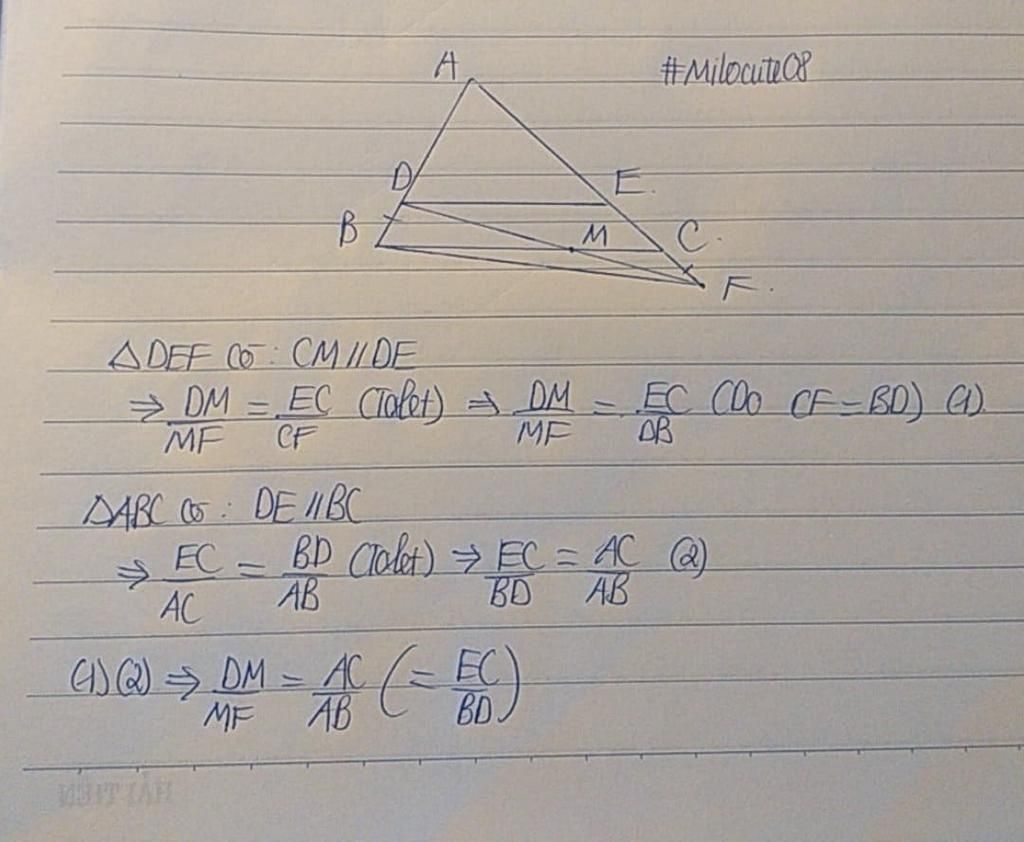 A #Milocute08
D E.
B M C.
F.
△DEF có: CM//DE
⇒ DM/MF = EC/CF (Talet) ⇒ DM/MF = EC/DB (Do CF=BD) (1)
△ABC có: DE//BC
⇒ EC/AC = BD/AB (Talet) ⇒ EC/BD = AC/AB (2)
(1)(2) ⇒ DM/MF = AC/AB (= EC/BD)
HẢI TIẾN